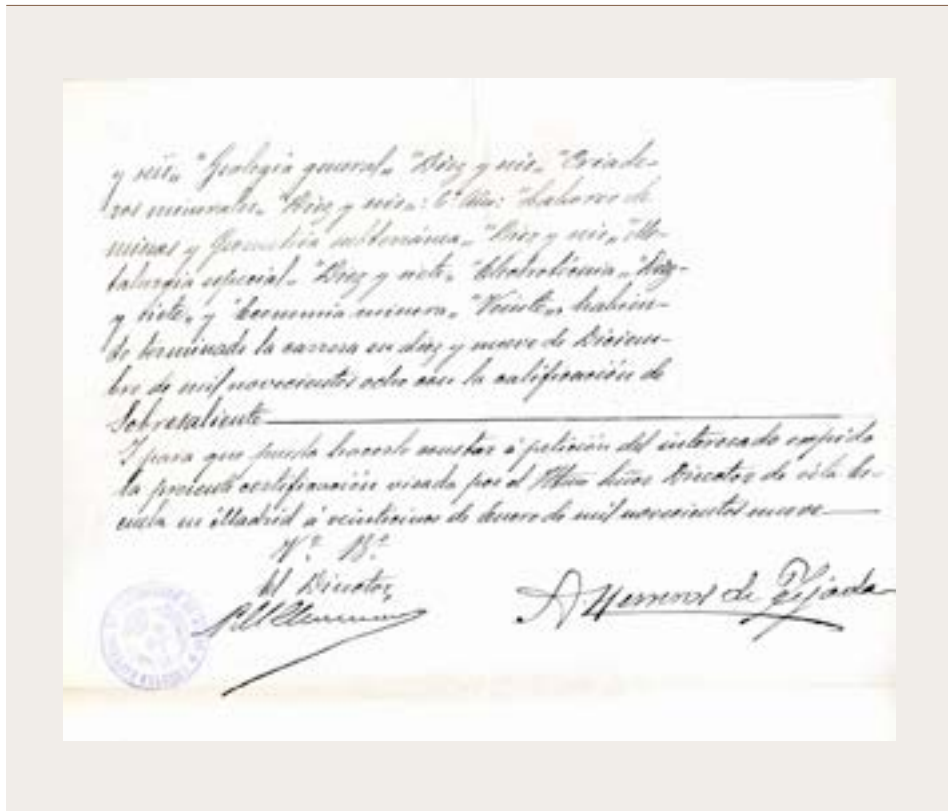 y seis„ "Geología general„ "Diez y seis„ "Criade-
ros minerales„ "Diez y seis„: 6º Año: "Laboreo de
minas y Geometría subterránea„ "Diez y seis„ "Me-
talurgia especial„ "Diez y siete„ "Electrotécnia„ "Diez
y siete„ y "Economía minera„ "Veinte„, habien-
do terminado la carrera en diez y nueve de Diciem-
bre de mil novecientos ocho con la calificación de
Sobresaliente
Y para que pueda hacerlo constar á petición del interesado expido
la presente certificación visada por el Señor Director de esta Es-
cuela en Madrid á veinticinco de Enero de mil novecientos nueve
Vº Bº
El Director
A Herreros de Tejada